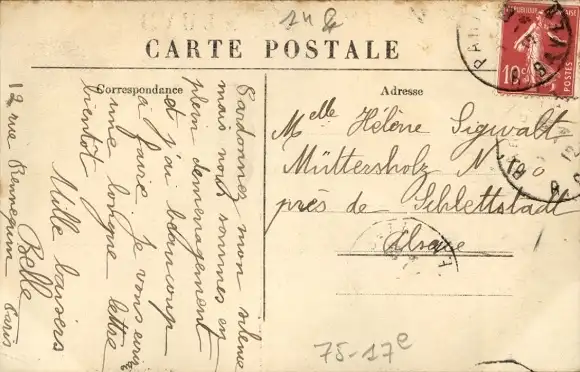 14 fr
CARTE POSTALE
Correspondance
Adresse
RÉPUBLIQUE FRANÇAISE
10c
POSTES
PARIS
Pardonnez mon silence
mais nous sommes en
plein demenagement
et j'ai beaucoup
à faire je vous écrirai
une longue lettre
bientôt
Mille baisers
Belle
12 rue Paris
Melle Hélène Sigwalt
Müttersholz N 10
près de Schlettstadt
Alsace
75-17e